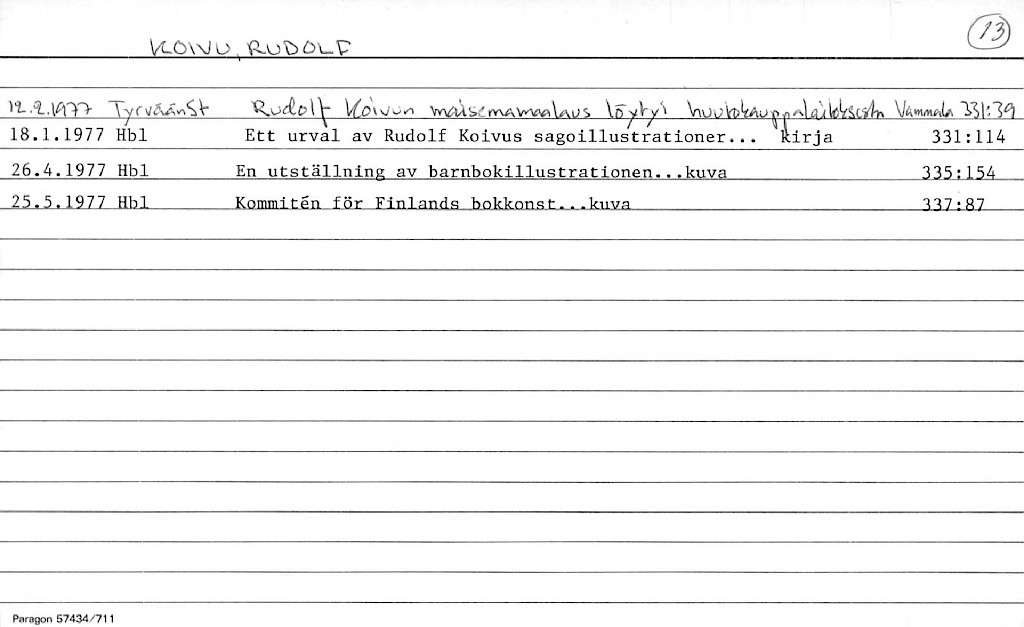 13
KOIVU, RUDOLF
12.2.1977 TyrväänSt Rudolf Koivun maisemamaalaus löytyi huutokauppalaatikosta Vammala 331:39
18.1.1977 Hbl Ett urval av Rudolf Koivus sagoillustrationer... kirja 331:114
26.4.1977 Hbl En utställning av barnbokillustrationen...kuva 335:154
25.5.1977 Hbl Kommitén för Finlands bokkonst...kuva 337:87
Paragon 57434/711